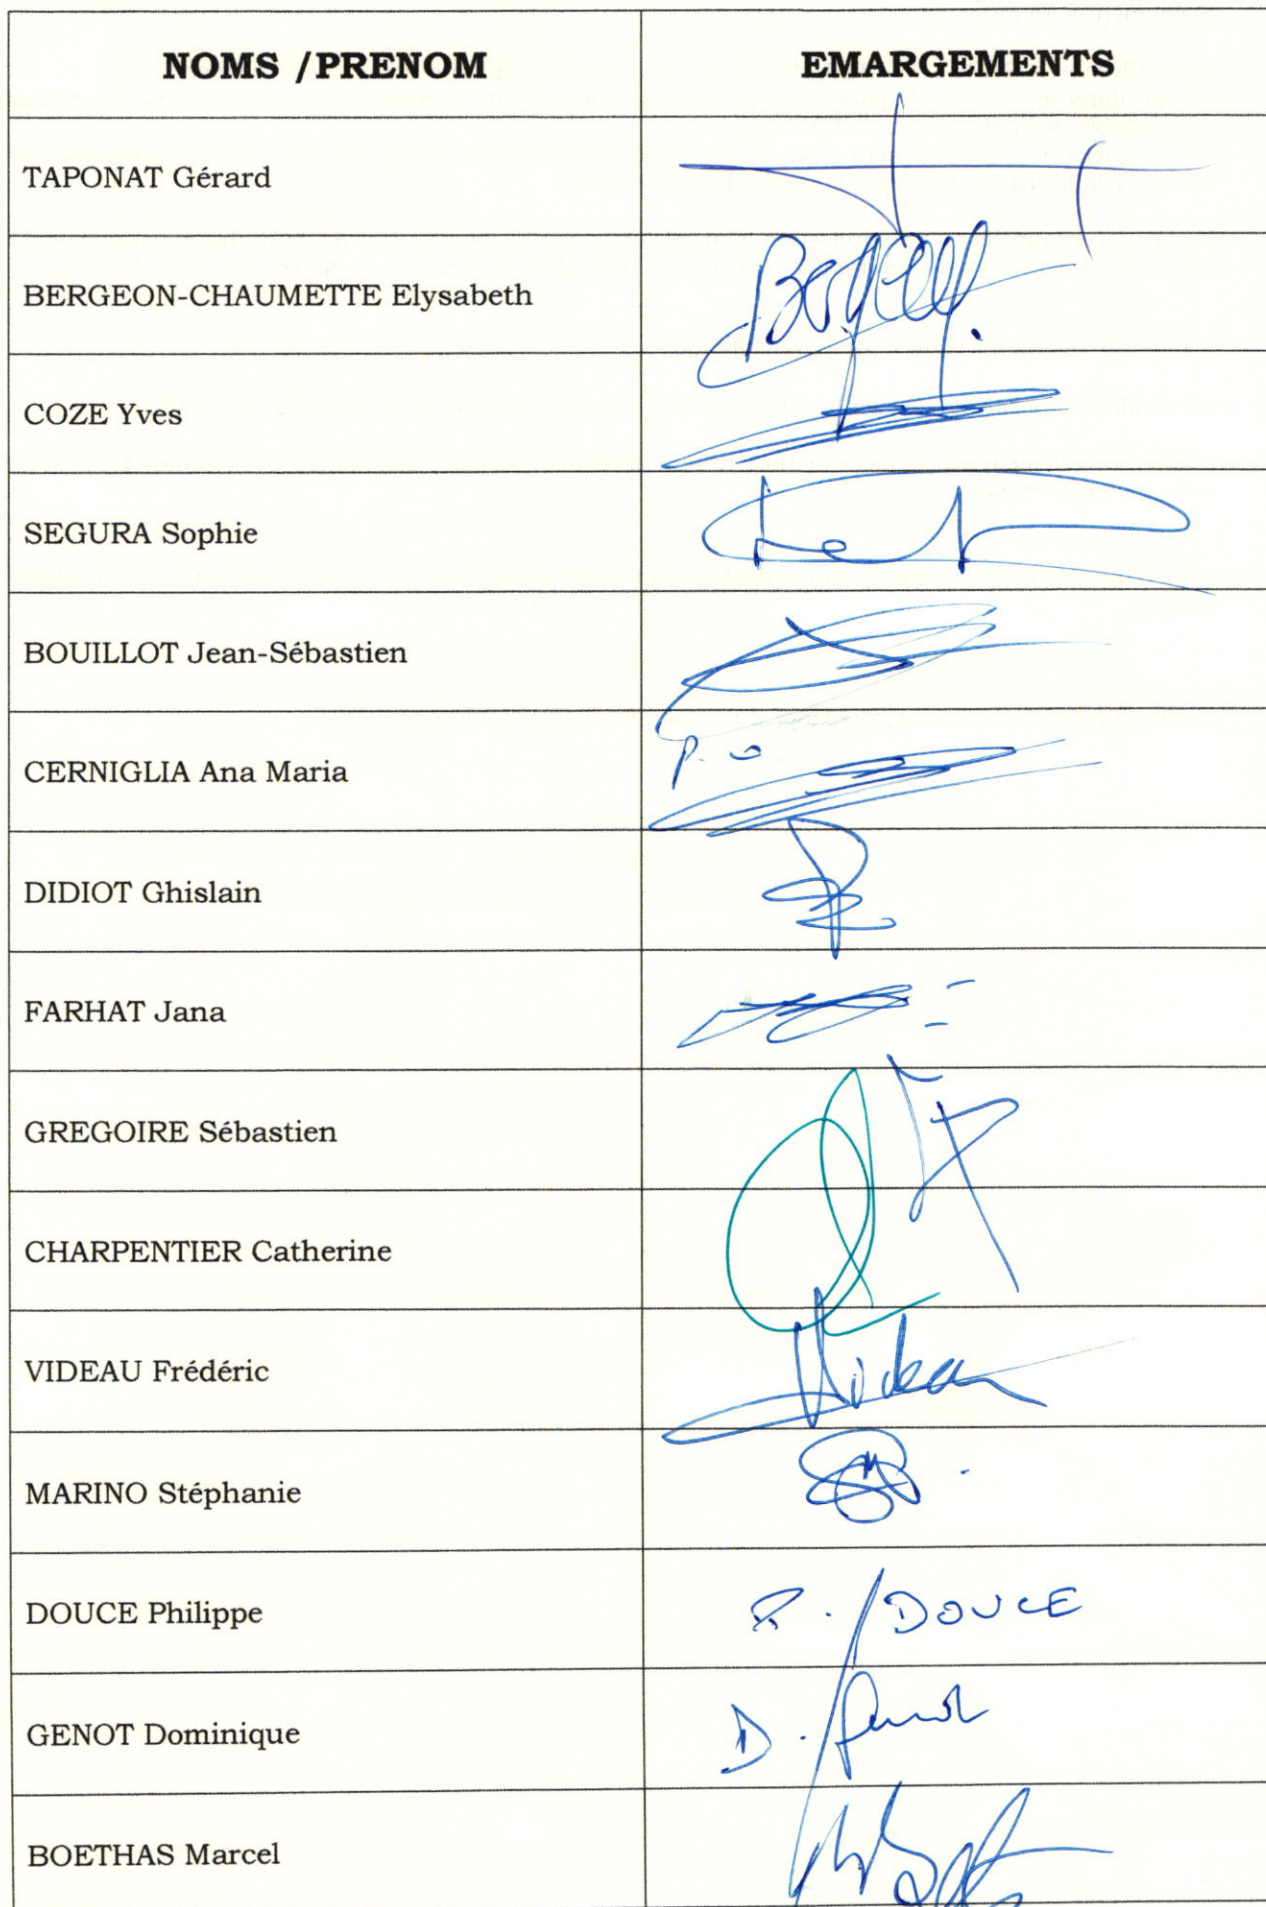 NOMS /PRENOM EMARGEMENTS
TAPONAT Gérard
BERGEON-CHAUMETTE Elysabeth
COZE Yves
SEGURA Sophie
BOUILLOT Jean-Sébastien
CERNIGLIA Ana Maria P. O
DIDIOT Ghislain
FARHAT Jana
GREGOIRE Sébastien
CHARPENTIER Catherine
VIDEAU Frédéric Videau
MARINO Stéphanie
DOUCE Philippe P. DOUCE
GENOT Dominique D. Genot
BOETHAS Marcel